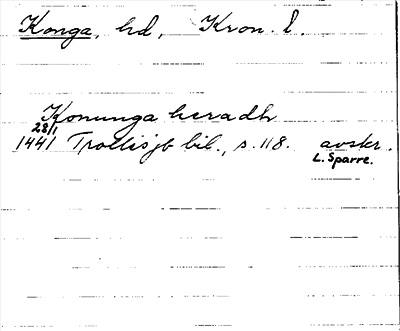 Konga, hd, Kron. l.
Konunga heradh
28/1
1441 Trollesjö bil., s. 118. avskr.
L. Sparre.